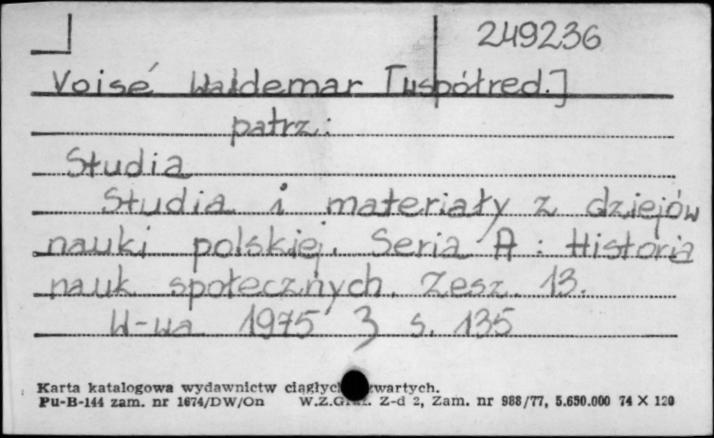 249236
Voisé Waldemar [współred.]
patrz:
Studia
Studia i materiały z dziejów
nauki polskiej. Seria A : Historia
nauk społecznych. Zesz. 13.
W-wa 1975 s. 135
Karta katalogowa wydawnictw ciągłych zwartych.
Pu-B-144 zam. nr 1674/DW/On W.Z.Graf. Z-d 2, Zam. nr 988/77, 5.650.000 74 X 120